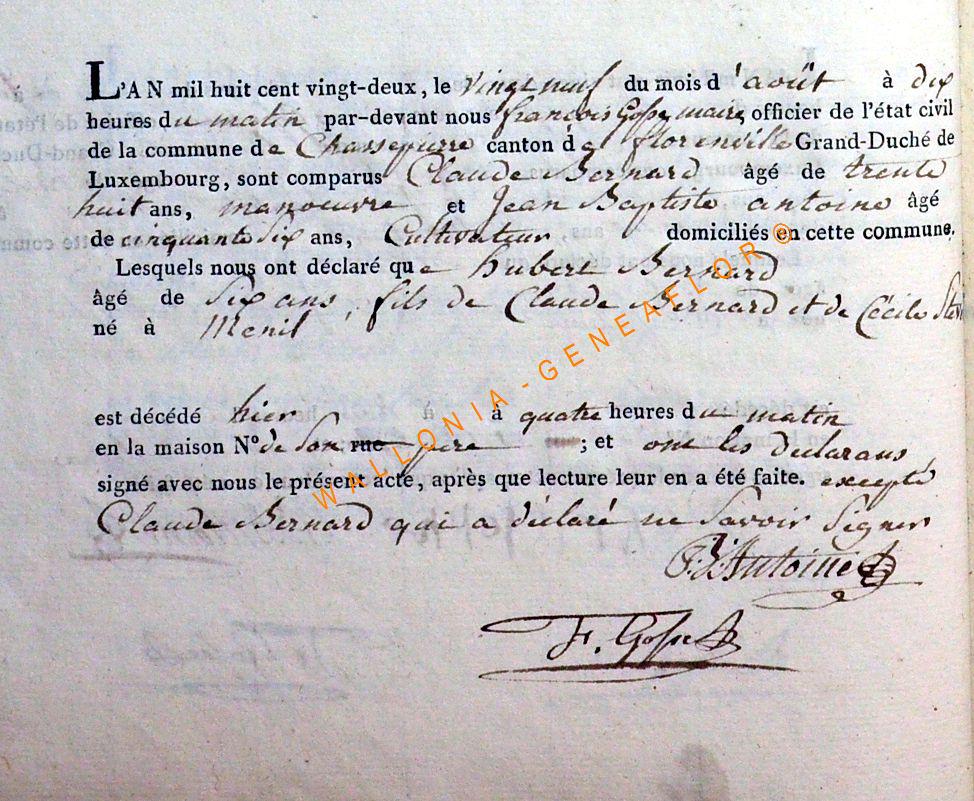 L'AN mil huit cent vingt-deux, le vingt neuf du mois d'août à dix
heures du matin par-devant nous françois Gosse, maire, officier de l'état civil
de la commune de Chassepierre canton de florenville Grand-Duché de
Luxembourg, sont comparus Claude Bernard âgé de trente
huit ans, manoeuvre et Jean Baptiste antoine âgé
de cinquante six ans, Cultivateur domiciliés en cette commune.
Lesquels nous ont déclaré que hubert Bernard
âgé de Six ans, fils de Claude Bernard et de Cécile
né à Menil
est décédé hier à quatre heures du matin
en la maison N° de Son rue pere ; et ont les déclarans
signé avec nous le présent acte, après que lecture leur en a été faite. excepté
Claude Bernard qui a déclaré ne Savoir Signer
J: B: Antoine
F. Gosse
WALLONIA-GENEAFLOR ©